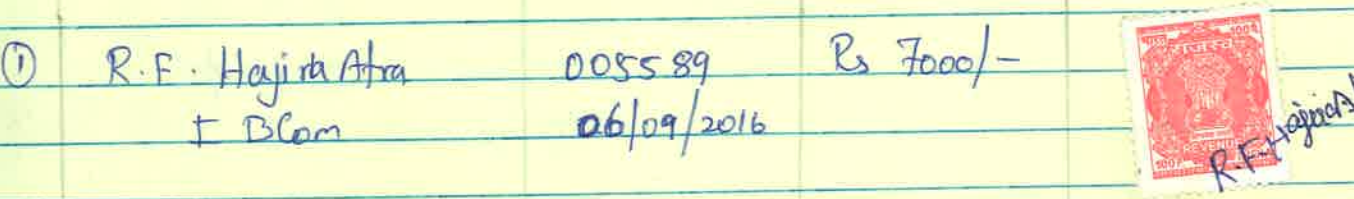 ① R.F. Hajira Afra 005589 Rs 7000/-
I BCom 06/09/2016
राजस्व
REVENUE
R.F. Hajira